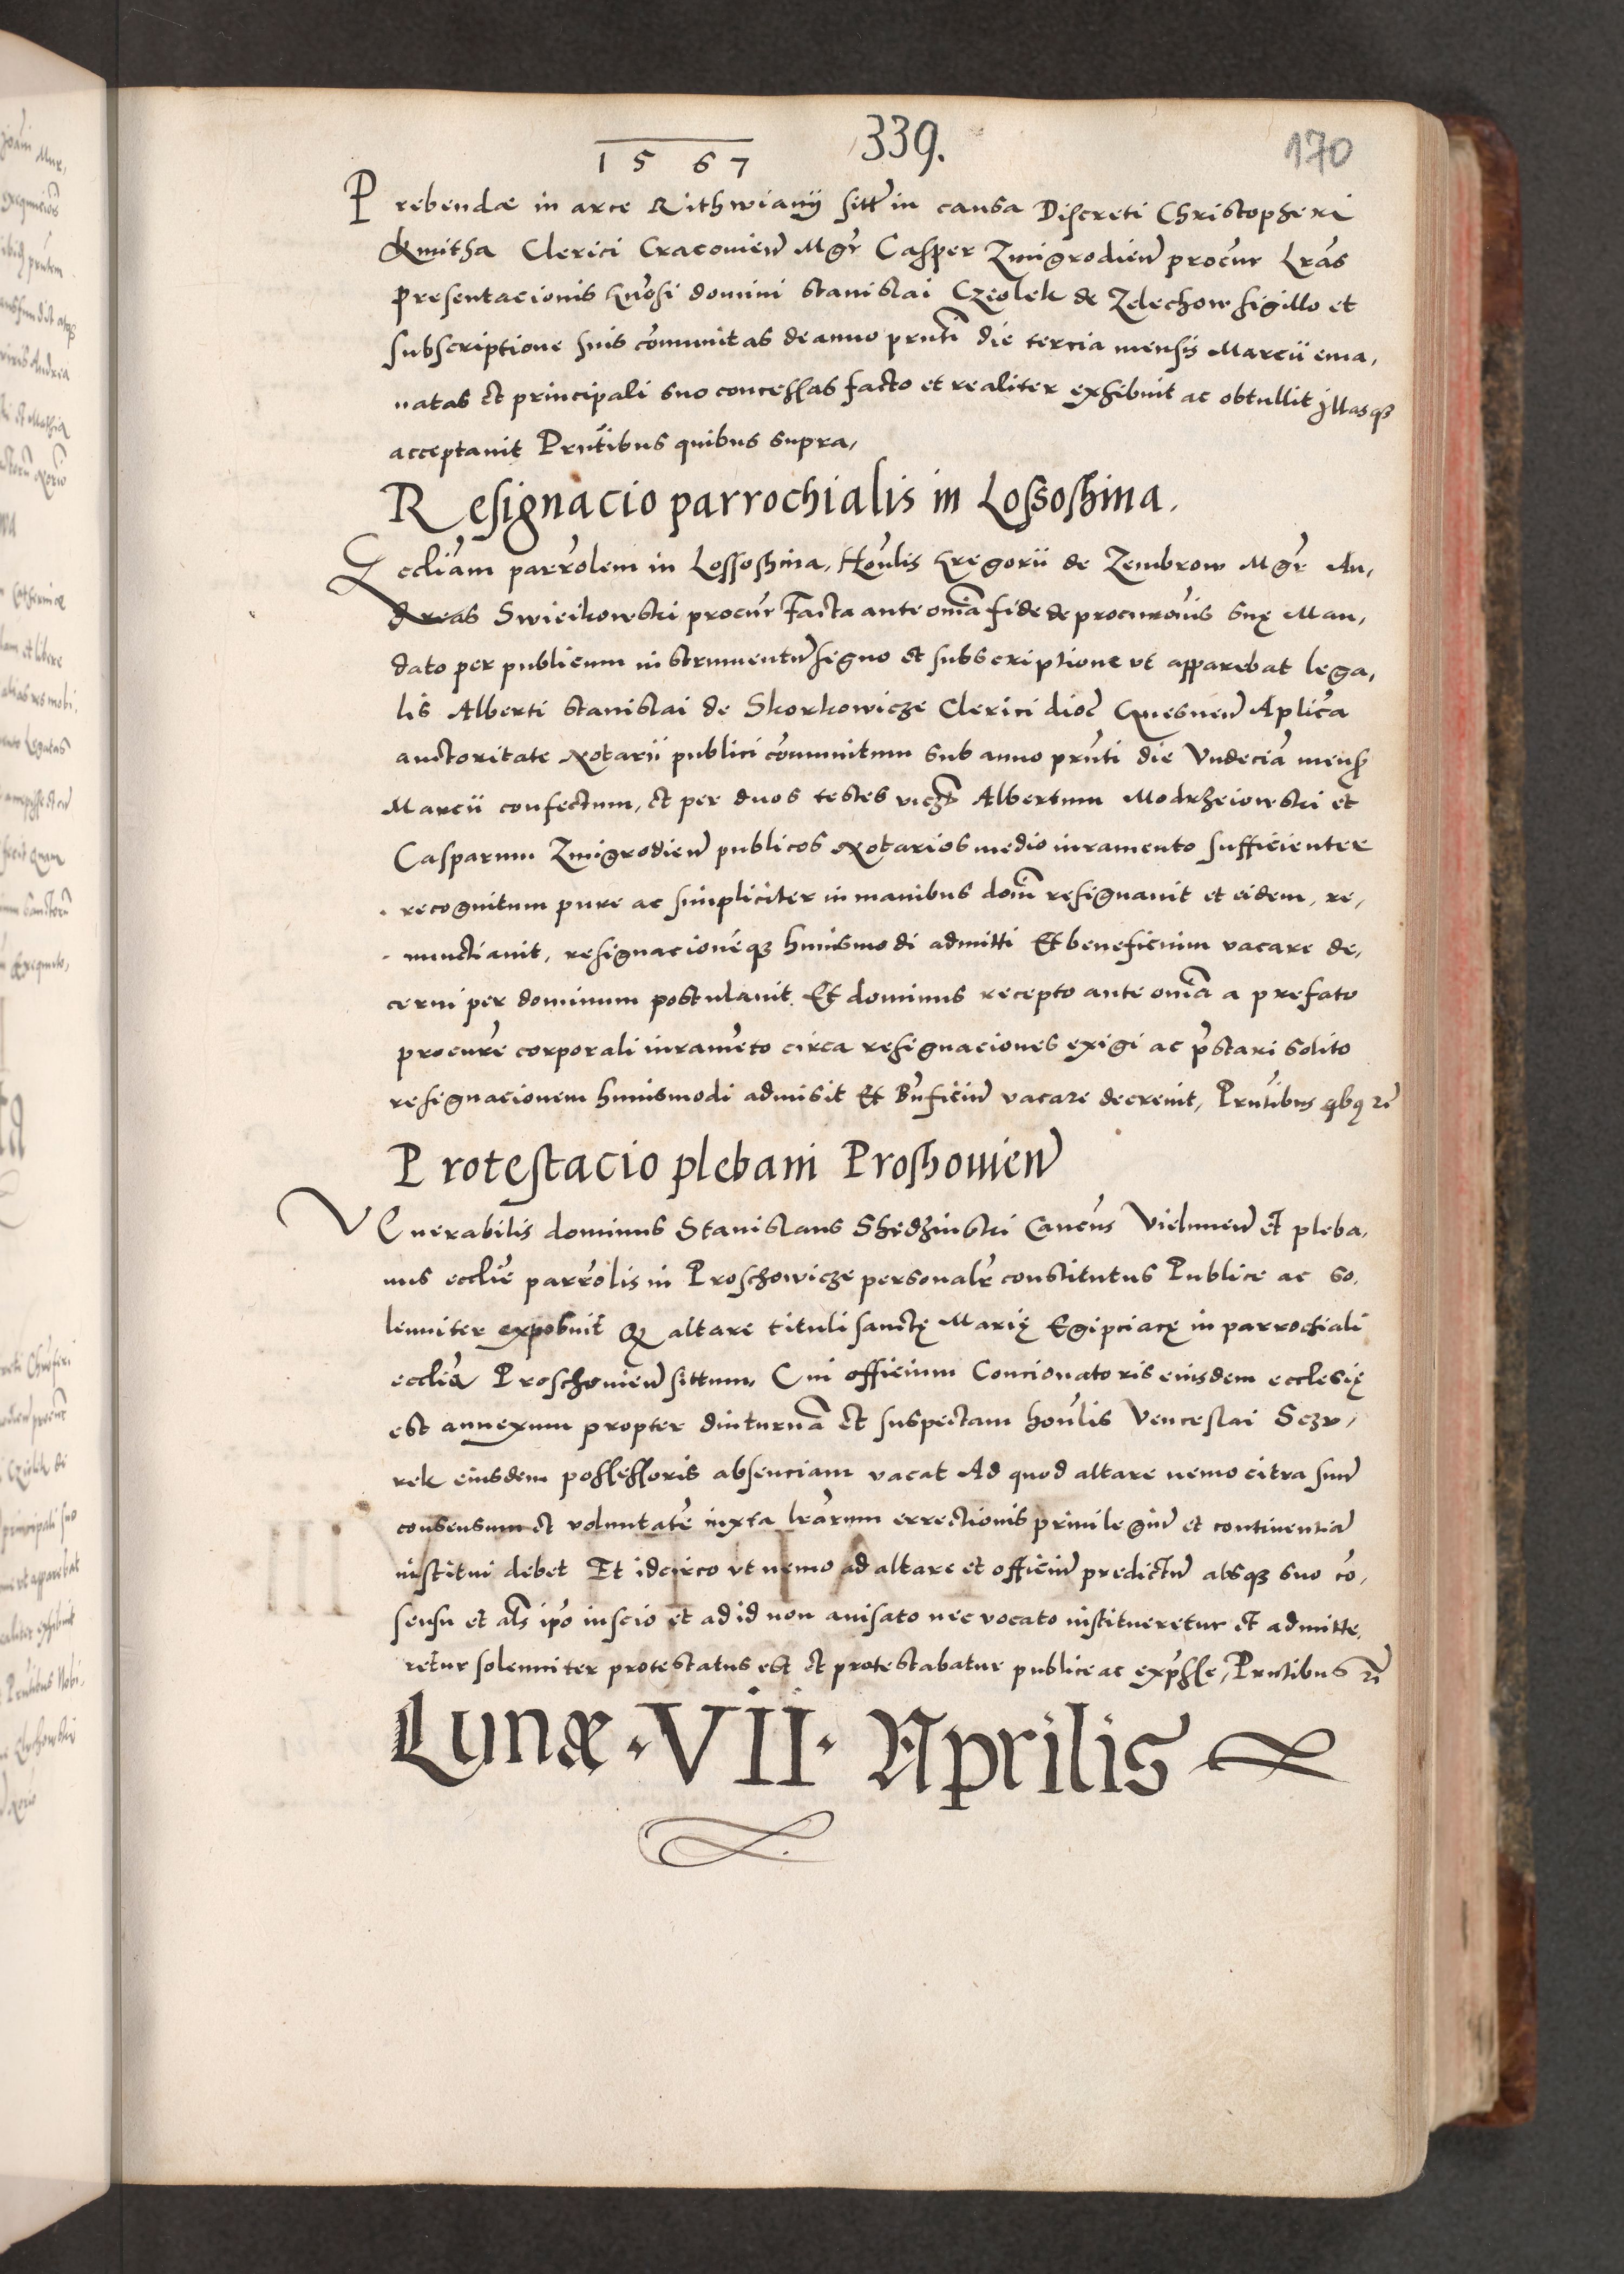 1567
339.
170
Prebendæ in arce Rithwiany sitt̃ in causa Discreti Christopheri
Kmitha Clerici Cracovien̄ Mgr̃ Casper Zmigrodien̄ procur̃ Lr̃as
presentacionis gn̄osi domini Stanislai Czeolek de Zelechow sigillo et
subscriptione suis cōmunitas de anno prn̄ti die tercia mensis Marcii ema,
natas et principali suo concessas facto et realiter exhibuit ac obtullit illasqȝ
acceptavit Prn̄tibus quibus supra,
Resignacio parrochialis in Lossoshina.
Eccli̅am parro̅lem in Lossoshina, Hon̄lis Gregorii de Zembrow Mgr̃ An,
dreas Swieikowski procur̃ Facta ante om̄ia fide de procurōis suę Man,
dato per publicum instrumentū signo et subscriptione ut apparebat lega,
lis Alberti Stanislai de Skorkowicze Clerici dioc̄ Gnesnen̄ Apli̅ca
auctoritate Notarii publici cōmunitum sub anno prn̄ti die Undeciā mens̄
Marcii confectum, et per duos testes vicȝt Albertum Modrzeiowski et
Casparum Zmigrodien̄ publicos Notarios medio iuramento sufficienter
recognitum pure ac simpliciter in manibus dom̄i resignavit et eidem, re,
nunctiavit, resignacionēqȝ huiusmodi admitti Et beneficium vacare de,
cerni per dominum postulavit. Et dominus recepto ante om̄ia a prefato
procure̅ corporali iuramēto circa resignaciones exigi ac p̄stari solito
resignacionem huiusmodi admisit Et Bn̄ficiū vacare decrevit, Prn̄tibus qbꝯ zc̄
Protestacio plebani Proshovien̄
VEnerabilis dominus Stanislaus Shedzinski Canc̄us Vielunen̄ et pleba,
nus eccli̅e parro̅lis in Proschowicze personalr̃ constitutus Publice ac so,
lenniter exposuit Qȝ altare tituli sanctę Marię Egipciacę in parrochiali
eccli̅a Proschovien̄ sittum, Cui officium Concionatoris eiusdem ecclesię
est annexum propter diuturnā et suspectam hon̄lis Venceslai Sczu,
rek eiusdem possessoris absenciam vacat Ad quod altare nemo citra suū
consensum et voluntatē iuxta lr̃arum errectionis privilegiū et continentiā
institui debet Et idcirco ut nemo ad altare et officiū predictū absqȝ suo cō,
sensu et al̄s ip̄o inscio et ad id non avisato nec vocato institueretur et admitte,
retur solenniter protestatus est et protestabatur publice ac exp̄sse, Prn̄tibus zc̄
Lunæ · VII · Aprilis